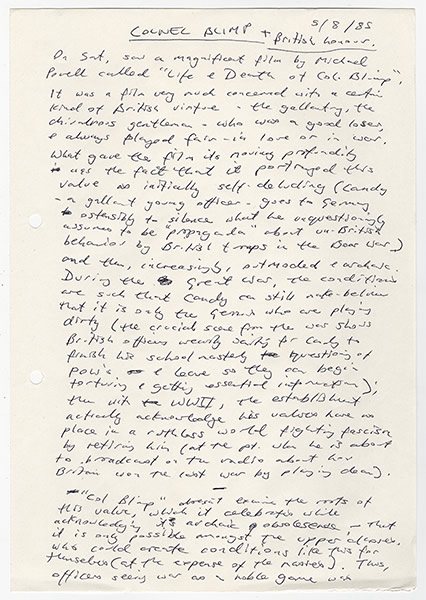 5/8/85
COLNEL BLIMP + British honour.
On Sat, saw a magnificent film by Michael
Powell called "Life & Death of Col. Blimp".
It was a film very much concerned with a certain
kind of British virtue - the gallantry, the
chivalrous gentleman - who was a good loser,
& always played fair - in love or in war.
What gave the film its moving profundity
was the fact that it portrayed this
value as initially self-deluding (Candy
- a gallant young officer - goes to Germany
ostensibly to silence what he unquestioningly
assumes to be "propaganda" about un-British
behavior by British troops in the Boer War)
and then, increasingly, outmoded & archaic.
During the Great War, the conditions
are such that Candy can still make-believe
that it is only the Germans who are playing
dirty (the crucial scene from the war shows
British officers wearily waiting for Candy to
finish his school masterly questioning of
POW's & leave so they can begin
torturing & getting essential information);
then with WWII, the establishment
actually acknowledge his values have no
place in a ruthless world fighting fascism
by retiring him (at the pt. when he is about
to broadcast on the radio about how
Britain won the last war by playing clean).
"Col Blimp" doesn't examine the roots of
this value, which it celebrates while
acknowledging its archaic obsolesence - that
it is only possible amongst the upper classes,
who could create conditions like this for
themselves (at the expense of the masses). Thus,
officers seeing war as a noble game with